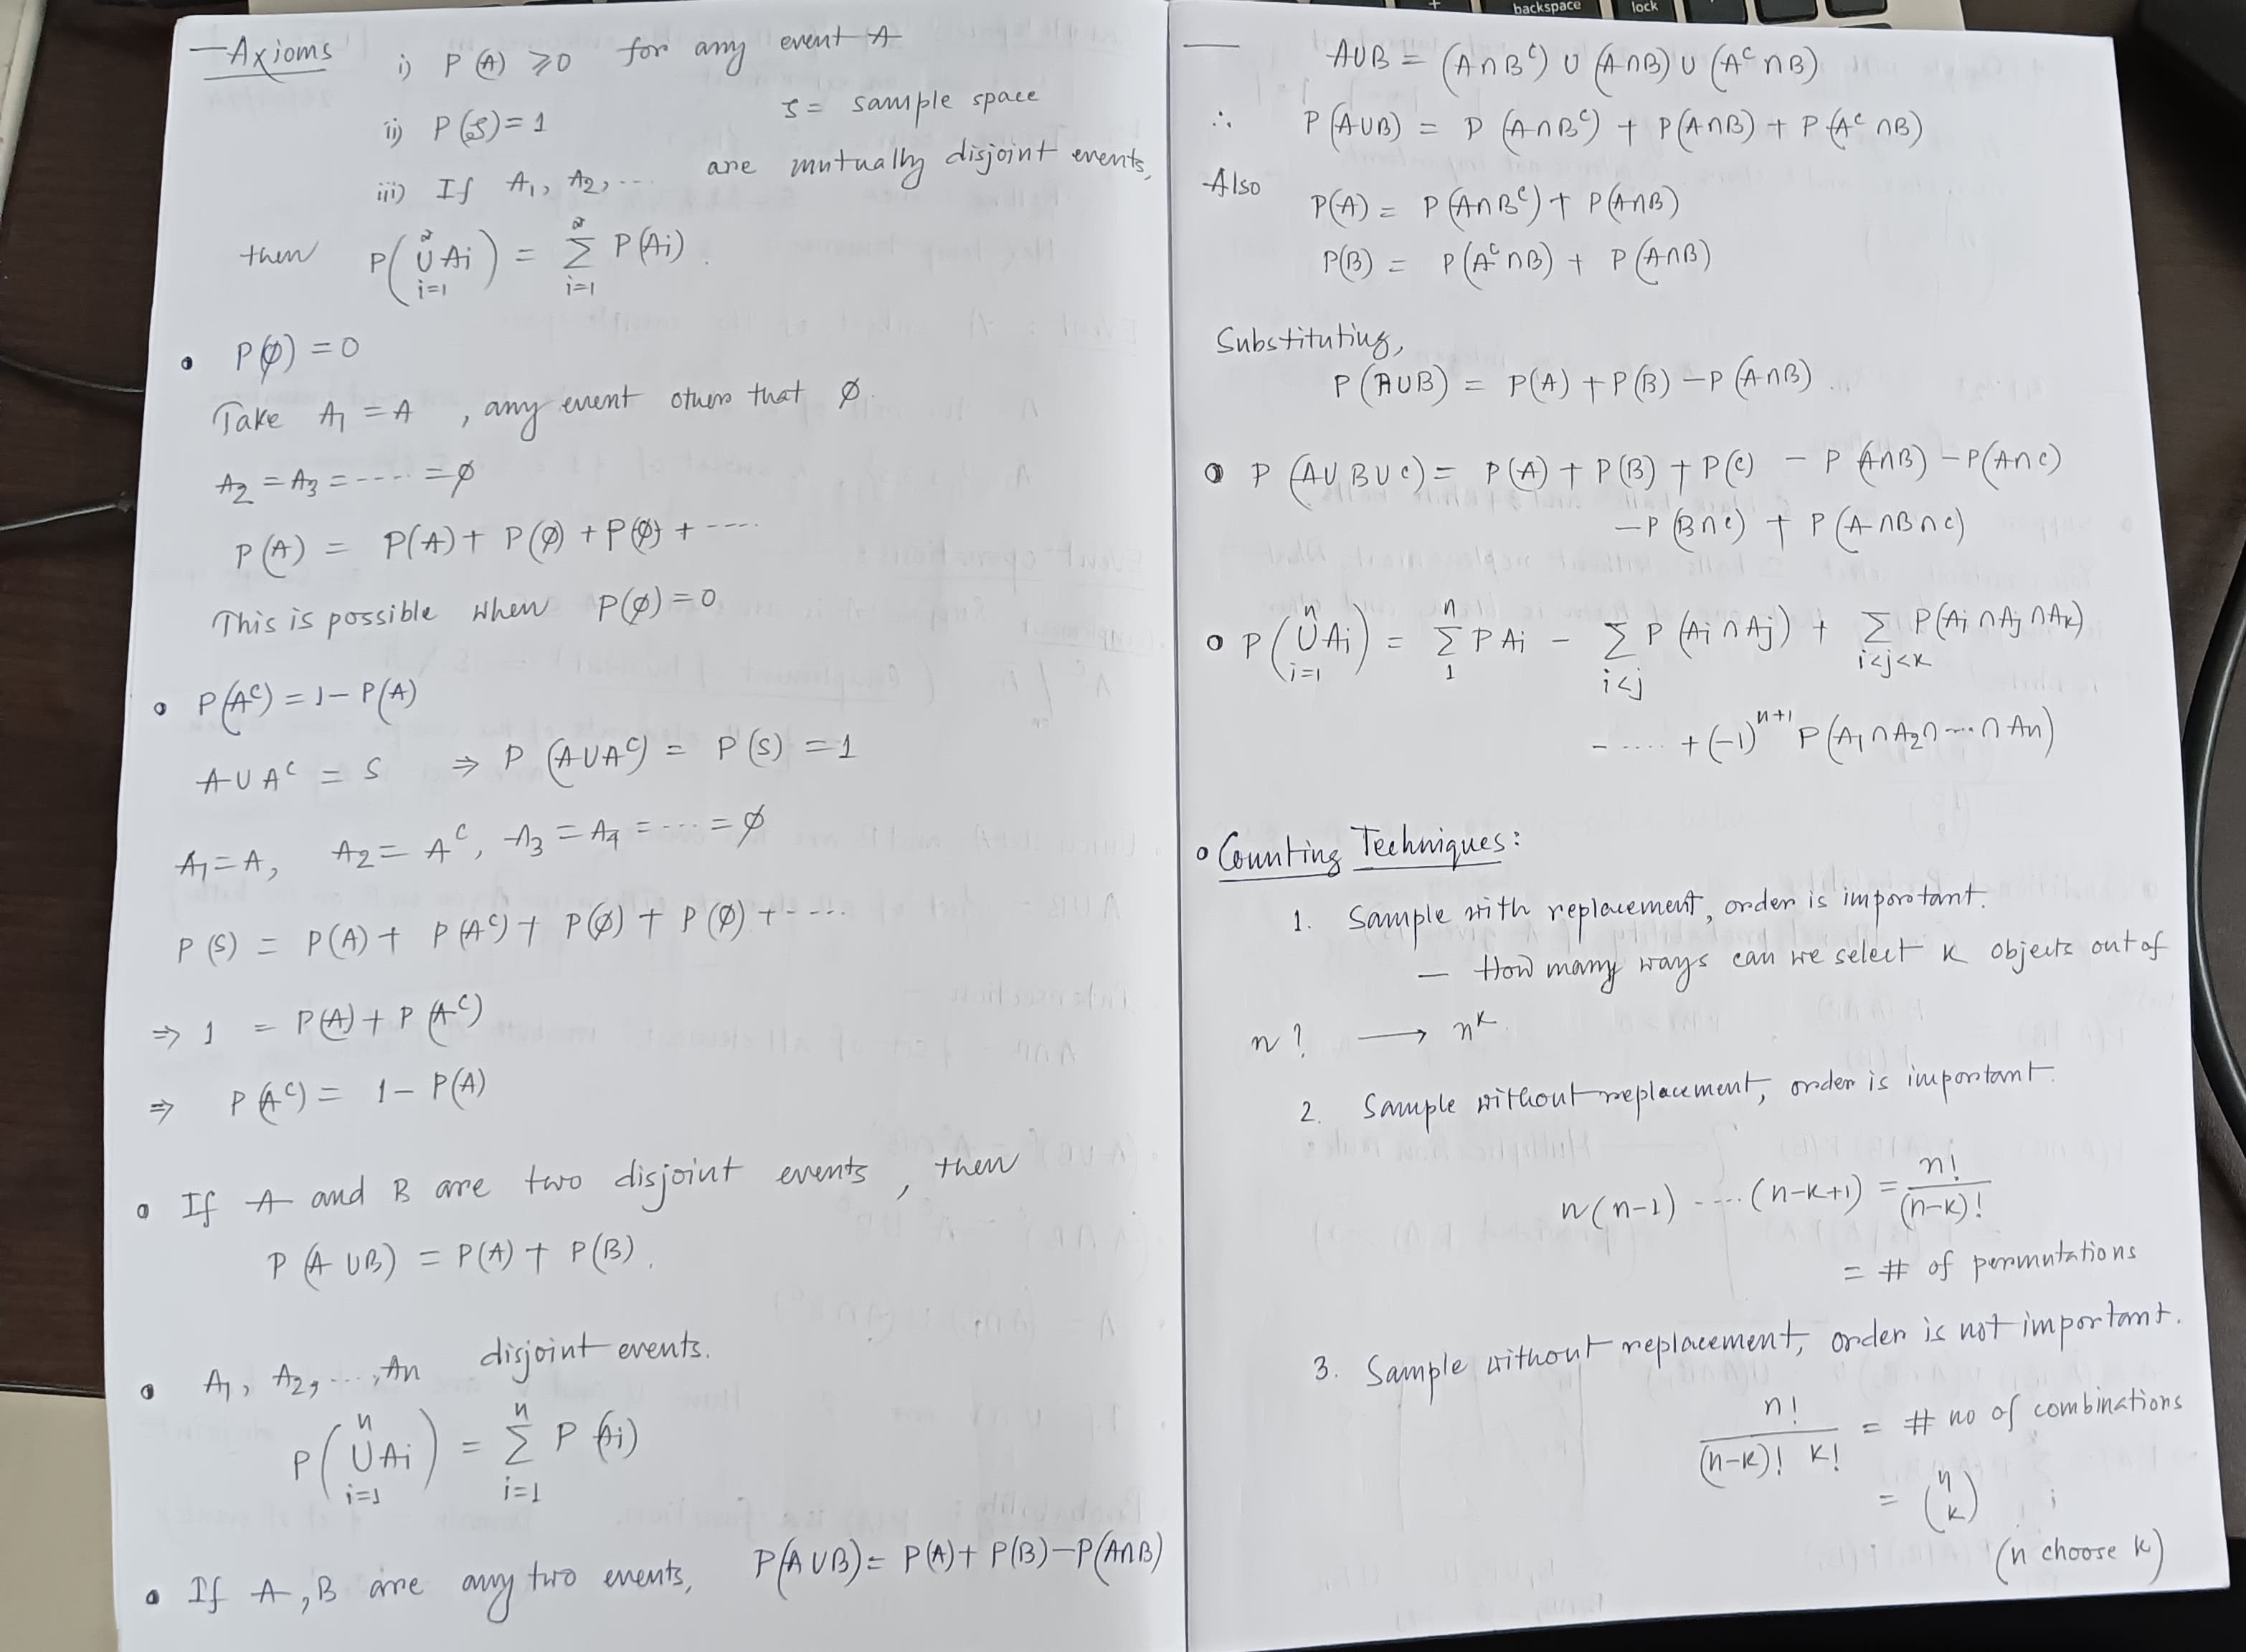 backspace
lock
— Axioms i) P(A) ⩾ 0 for any event A
ii) P(S) = 1 S = sample space
iii) If A₁, A₂, ... are mutually disjoint events,
then P(∞∪i=1 Ai) = ∞∑i=1 P(Ai).
• P(∅) = 0
Take A₁ = A , any event others that ∅.
A₂ = A₃ = ---- = ∅
P(A) = P(A) + P(∅) + P(∅) + ----
This is possible when P(∅) = 0
• P(Aᶜ) = 1 – P(A)
A ∪ Aᶜ = S ⇒ P(A∪Aᶜ) = P(S) = 1
A₁ = A, A₂ = Aᶜ, A₃ = A₄ = ---- = ∅
P(S) = P(A) + P(Aᶜ) + P(∅) + P(∅) + ----
⇒ 1 = P(A) + P(Aᶜ)
⇒ P(Aᶜ) = 1 – P(A)
• If A and B are two disjoint events, then
P(A ∪ B) = P(A) + P(B).
• A₁, A₂, ..., An disjoint events.
P(n∪i=1 Ai) = n∑i=1 P(Ai)
• If A, B are any two events, P(A∪B) = P(A) + P(B) – P(A∩B)
— A∪B = (A∩Bᶜ) ∪ (A∩B) ∪ (Aᶜ∩B)
∴ P(A∪B) = P(A∩Bᶜ) + P(A∩B) + P(Aᶜ∩B)
Also P(A) = P(A∩Bᶜ) + P(A∩B)
P(B) = P(Aᶜ∩B) + P(A∩B)
Substituting,
P(A∪B) = P(A) + P(B) – P(A∩B).
• P(A∪B∪C) = P(A) + P(B) + P(C) – P(A∩B) – P(A∩C)
– P(B∩C) + P(A∩B∩C)
• P(n∪i=1 Ai) = n∑1 P Ai – ∑i<j P(Ai∩Aj) + ∑i<j<k P(Ai∩Aj∩Ak)
- .... + (-1)ⁿ⁺¹ P(A₁∩A₂∩....∩An)
• Counting Techniques:
1. Sample with replacement, order is important.
— How many ways can we select k objects out of
n? ⟶ nᵏ.
2. Sample without replacement, order is important.
n(n-1) ---- (n-k+1) = n!/(n-k)!
= # of permutations
3. Sample without replacement, order is not important.
n!/((n-k)! k!) = # no of combinations
= (n k)
(n choose k)